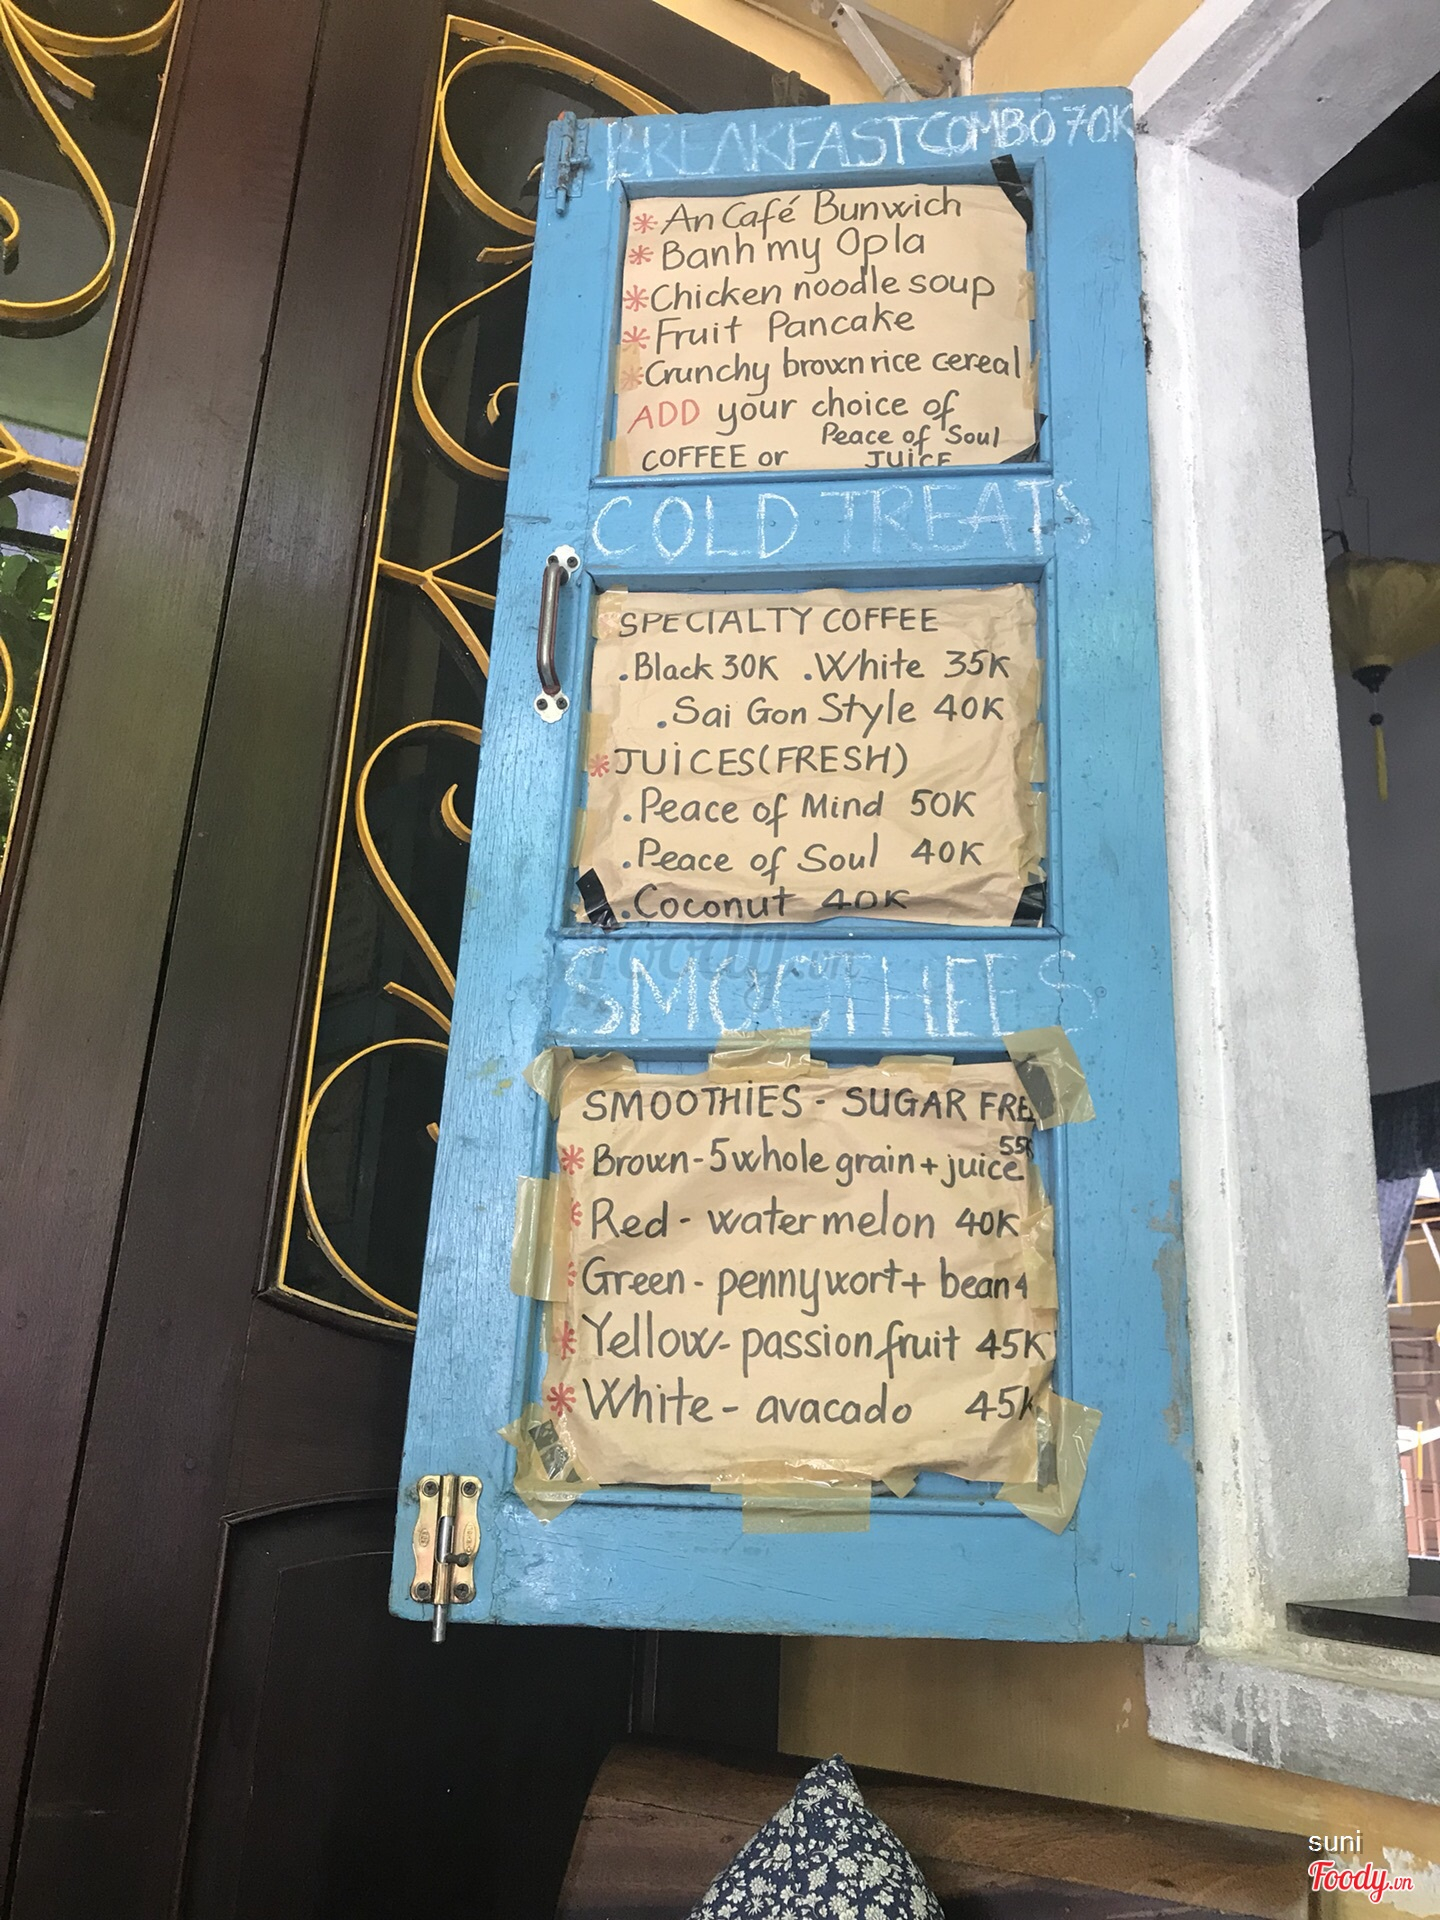 BREAKFAST COMBO 70K
* An Café Bunwich
* Banh my Opla
* Chicken noodle soup
* Fruit Pancake
* Crunchy brown rice cereal
ADD your choice of
Peace of Soul
COFFEE or JUICE
COLD TREATS
SPECIALTY COFFEE
. Black 30K . White 35K
. Sai Gon Style 40K
* JUICES (FRESH)
. Peace of Mind 50K
. Peace of Soul 40K
. Coconut 40K
Foody.vn
SMOOTHEES
SMOOTHIES - SUGAR FRE
55K
* Brown - 5 whole grain + juice
* Red - watermelon 40K
* Green - pennywort + bean 4
* Yellow - passion fruit 45K
* White - avacado 45K
suni
Foody.vn